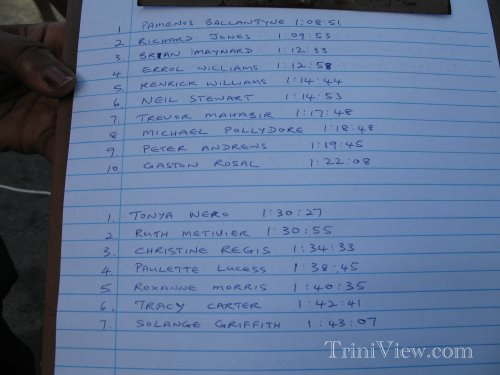 1 PAMENOS BALLANTYNE 1:08:51
2 RICHARD JONES 1:09:53
3. BRIAN MAYNARD 1:12:33
4 ERROL WILLIAMS 1:12:58
5 KENRICK WILLIAMS 1:14:44
6 NEIL STEWART 1:14:53
7. TREVOR MAHABIR 1:17:48
8 MICHAEL POLLYDORE 1:18:48
9 PETER ANDREWS 1:19:45
10. GASTON ROSAL 1:22:08
1. TONYA NERO 1:30:27
2. RUTH METIVIER 1:30:55
3. CHRISTINE REGIS 1:34:33
4 PAULETTE LUCESS 1:38:45
5. ROXANNE MORRIS 1:40:35
6. TRACY CARTER 1:42:41
7. SOLANGE GRIFFITH 1:43:07
TriniView.com